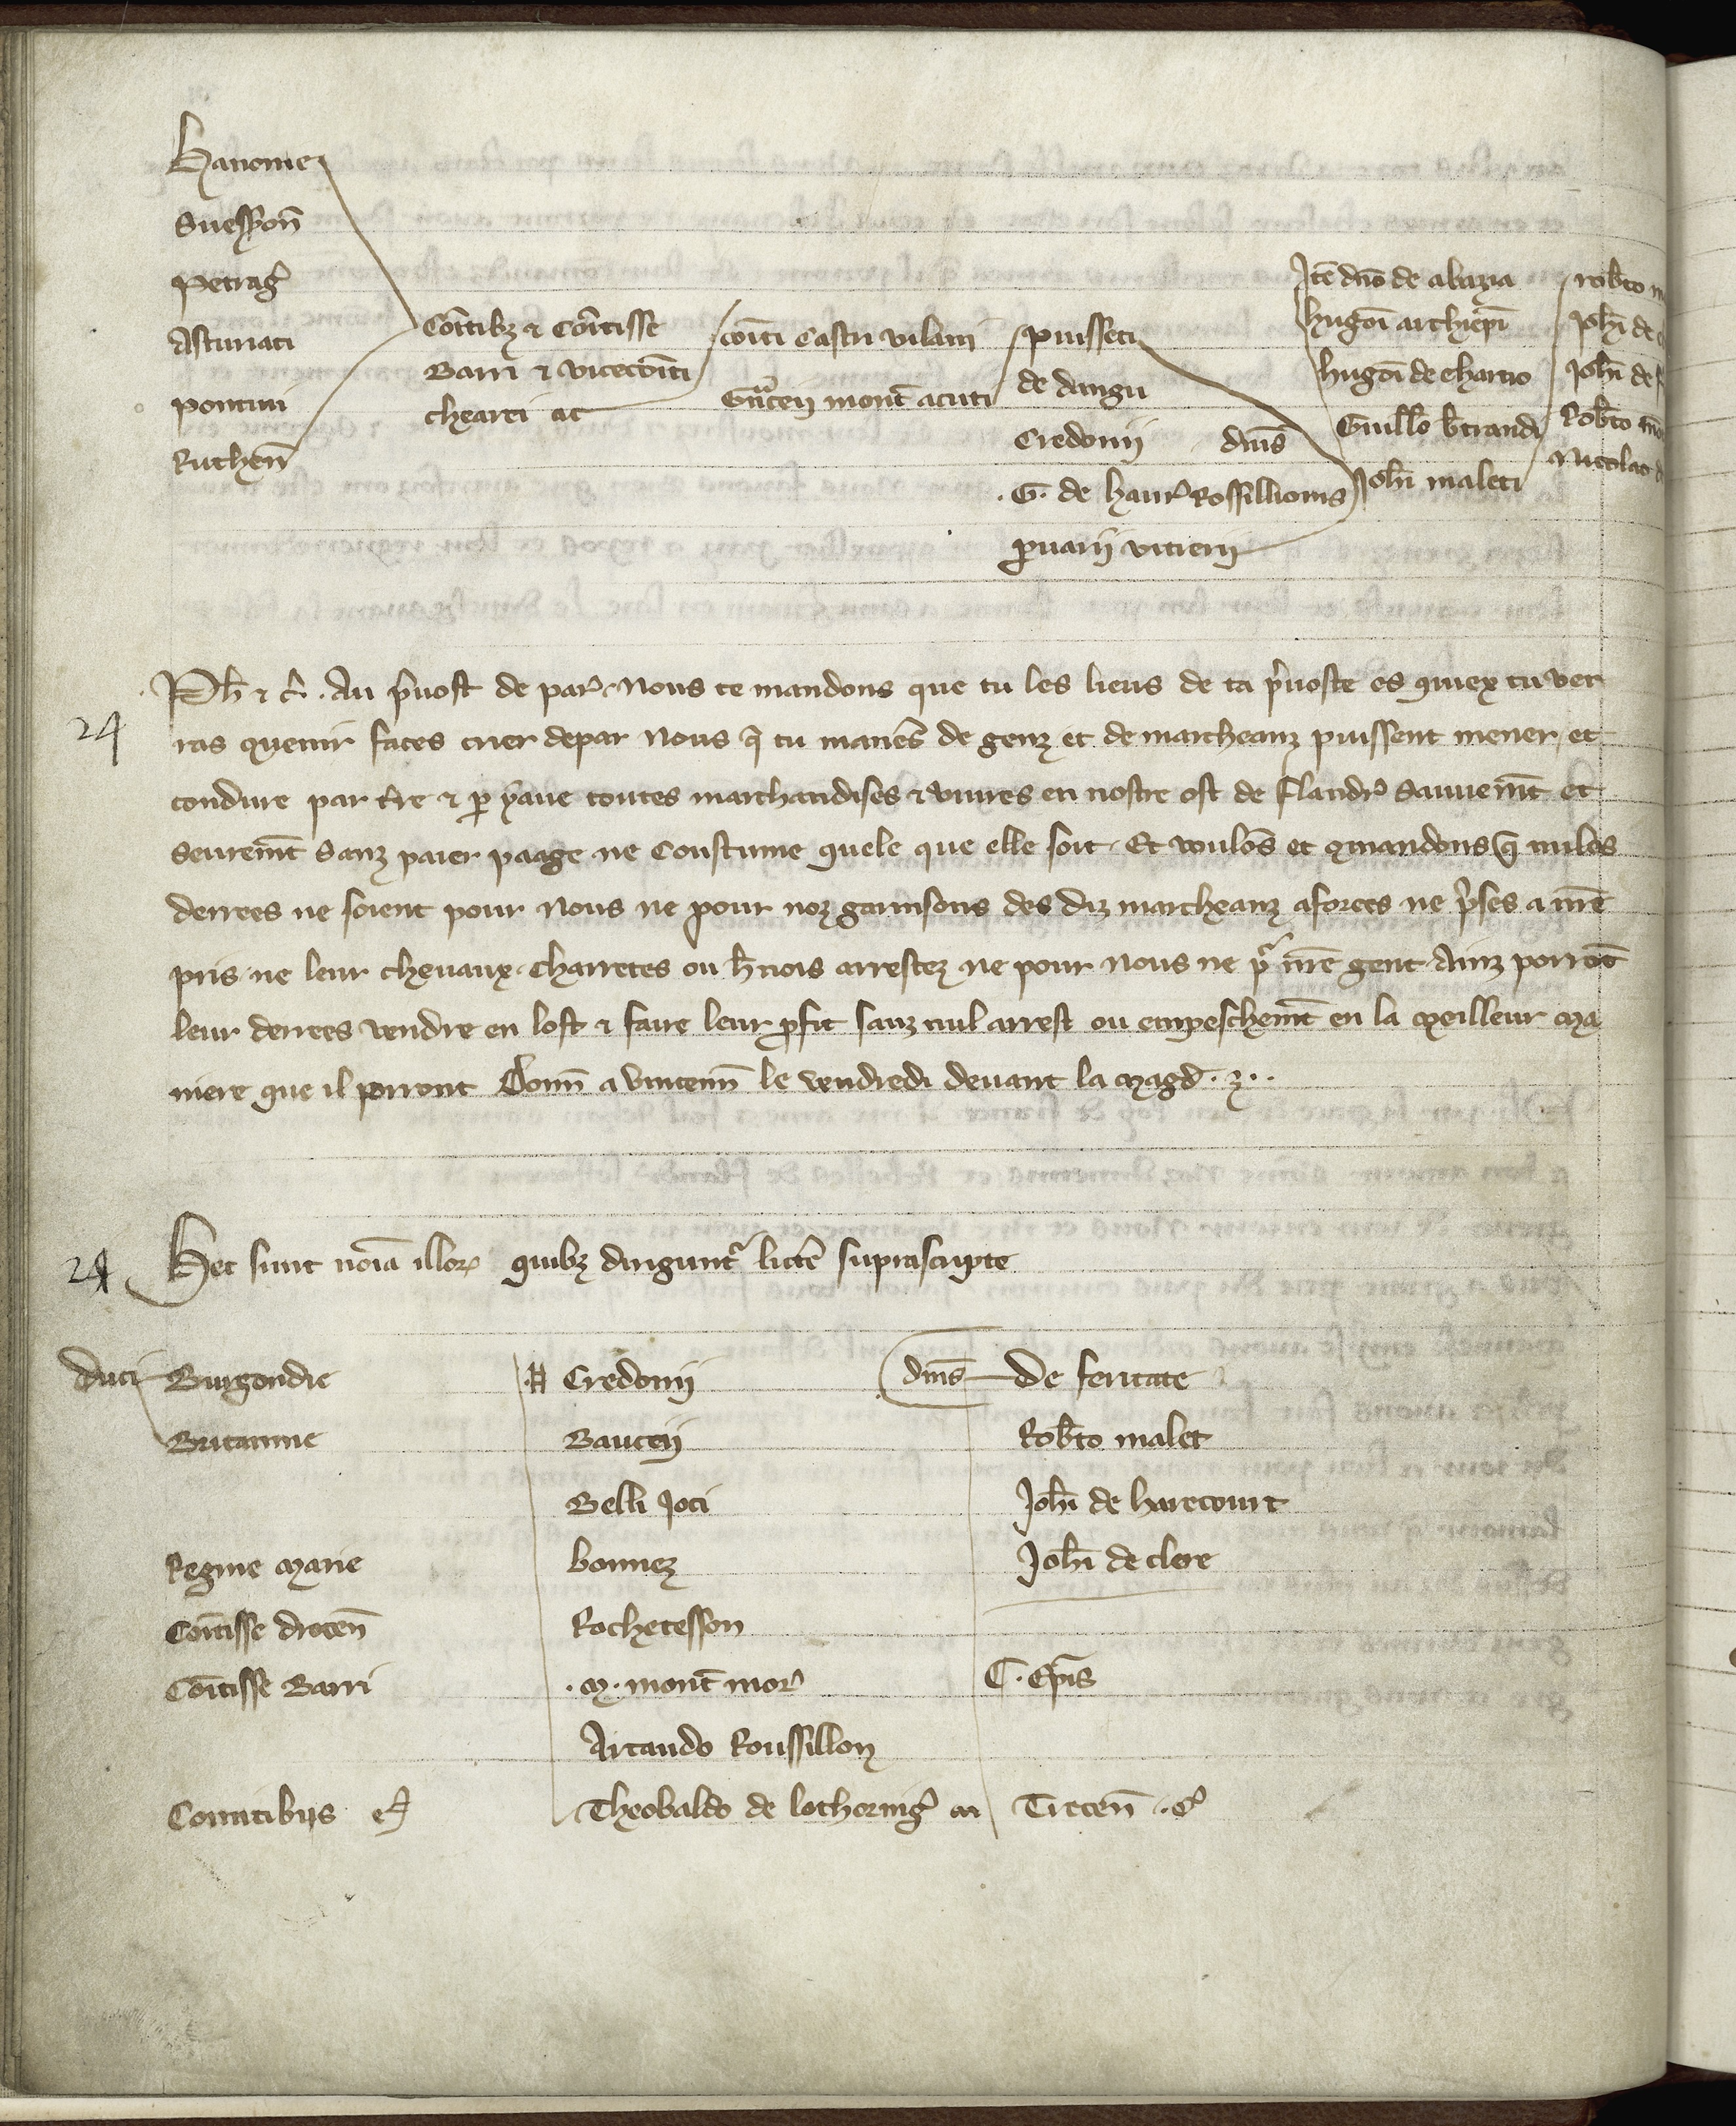 Hanonie
Suession̄
Petrag̉
Asturiati
pontiui
Ruthen̄
Com̄itibꝫ ⁊ Com̄itisse
Barri ⁊ vicecom̄iti
ac
com̄iti Castri vilani
mont̄ acuti
puisseti
de dangu
Credonij dn̄is
.G. de Rossillionis
Itē dn̄o de
hugoī archiep̄i
hugoī de
Guill̄o b̄trandi
Joh̄i maleti
rob̄to
Joh̄i de
Joh̄i de
Rob̄to
Nicolao
Ph̄ ⁊ c̉. Au p̉uost de par̉. Nous te mandons que tu les lieus de ta p̉uoste es quiex tu ver
24
ras ꝯuenir faces crier de par nous q̄ tu manes̄ de genz et de marcheanz puissent mener et
conduire par t̉re ⁊ ꝑ yaue toutes marchandises ⁊ viures en nostre ost de flandr̉ sauuemn̄t et
seuremn̄t sanz paier paage ne Coustume quele que elle soit. Et voulōs et ꝯmandons q̄ nules
derrees ne soient pour nous ne pour noz garnisons des diz marcheanz aforees ne p̉ses a nr̄e
pris ne leur cheuaux. Charretes ou h̄nois arrestez ne pour nous ne pr̉ nr̄e gent. Ainz porrōt
leur derrees vendre en lost ⁊ faire leur ꝓfit sanz nul arrest ou empeschemn̄t en la meilleur ma
niere que il porront Donn̄ a vincenn̄ le vendredi deuant la magd̉.
24
Hec sunt noīa illoꝝ quibꝫ dirigunt̉ litt̄e suprascripte
duci Burgondie
Britannie
Regine Marie
Com̄itisse drocen̄
Com̄itisse Barri
Comitibus
Credonij
Bauceij
Belli Joci
bonnez
Rochetesson
.M. mont̄ mor̉
Artaudo Roussillon
Theobaldo de lothoring̉
dn̄is De feritate
Rob̄to malet
Joh̄i de harecourt
Joh̄i de clere
C. Ep̄is